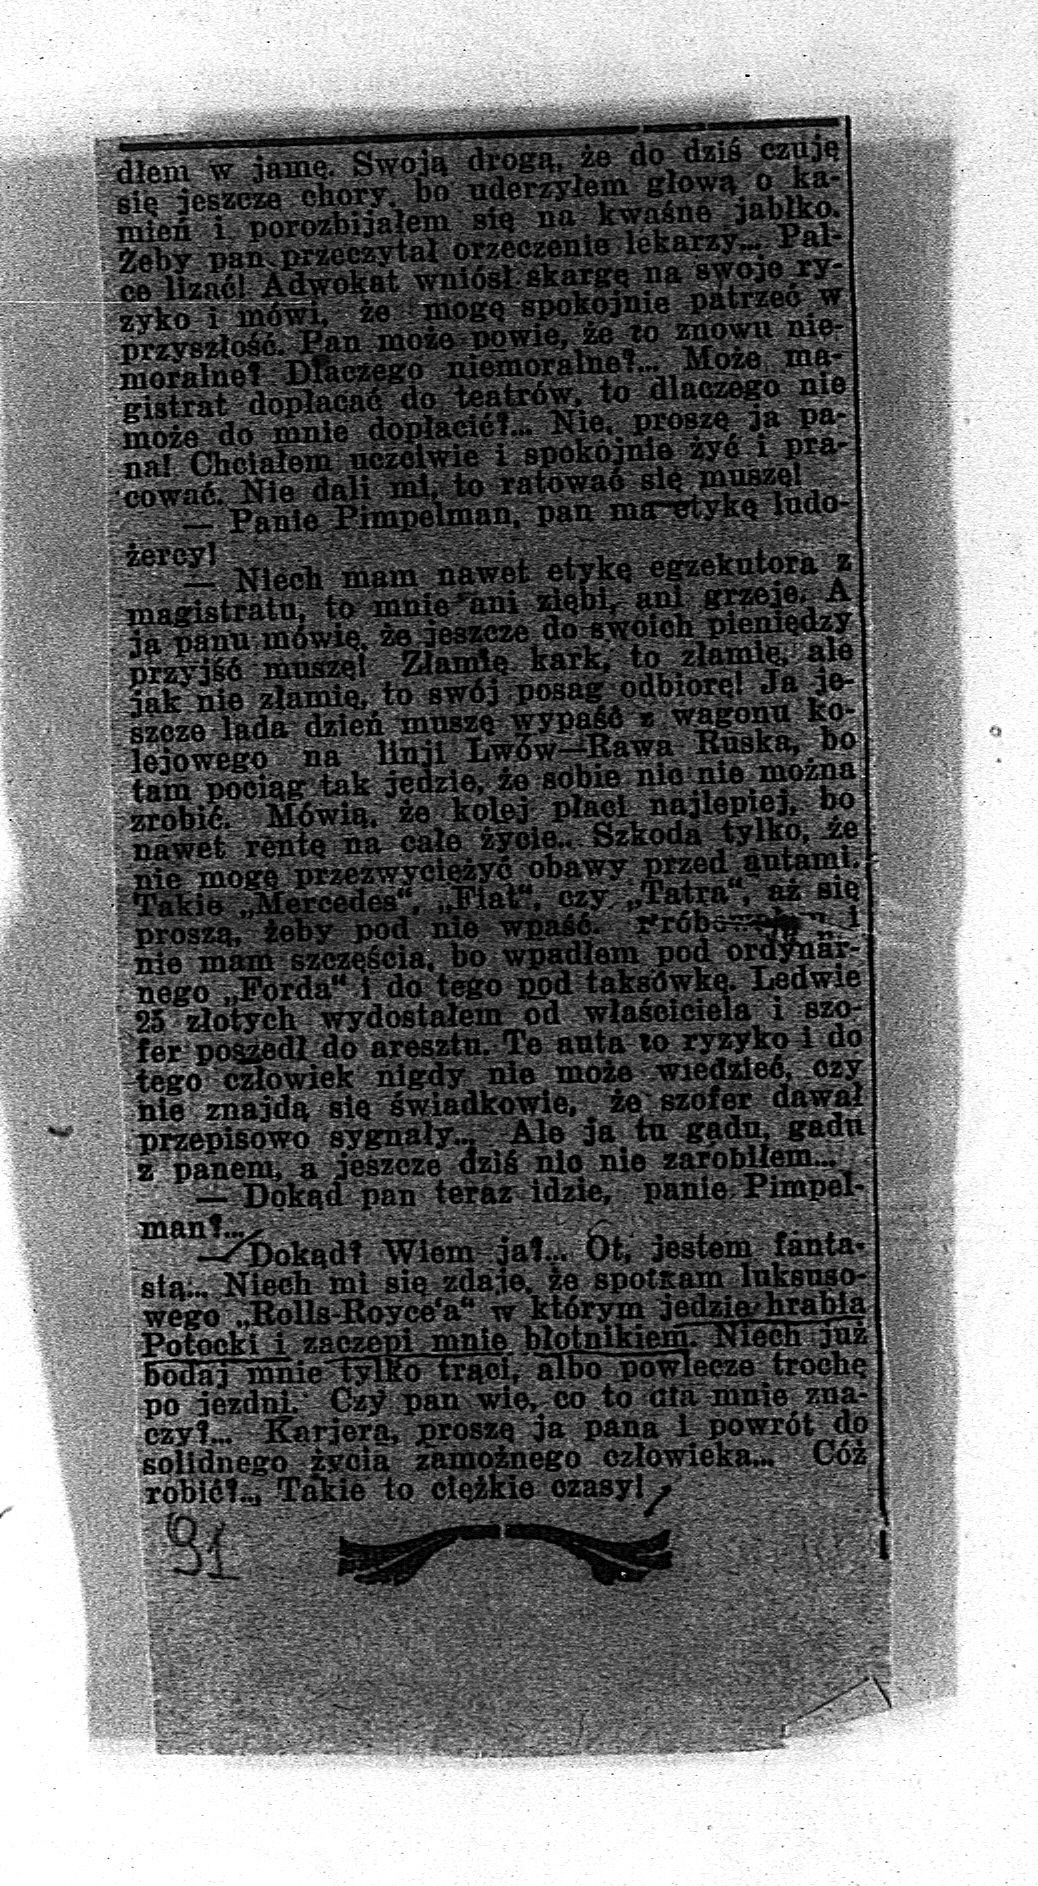 dłem w jamę. Swoją drogą, że do dziś czuję
się jeszcze chory, bo uderzyłem głową o ka-
mień i porozbijałem się na kwaśne jabłko.
Żeby pan przeczytał orzeczenie lekarzy... Pal-
ce lizać! Adwokat wniósł skargę na swoje ry-
zyko i mówi, że mogę spokojnie patrzeć w
przyszłość. Pan może powie, że to znowu nie-
moralne? Dlaczego niemoralne?... Może ma-
gistrat dopłacać do teatrów, to dlaczego nie
może do mnie dopłacić?... Nie, proszę ja pa-
na! Chciałem uczciwie i spokojnie żyć i pra-
cować. Nie dali mi, to ratować się muszę!
— Panie Pimpelman, pan ma etykę ludo-
żercy!
— Niech mam nawet etykę egzekutora z
magistratu, to mnie ani ziębi, ani grzeje. A
ja panu mówię, że jeszcze do swoich pieniędzy
przyjść muszę! Złamię kark, to złamię, ale
jak nie złamię, to swój posag odbiorę! Ja je-
szcze lada dzień muszę wypaść z wagonu ko-
lejowego na linji Lwów—Rawa Ruska, bo
tam pociąg tak jedzie, że sobie nic nie można
zrobić. Mówią, że kolej płaci najlepiej, bo
nawet rentę na całe życie.. Szkoda tylko, że
nie mogę przezwyciężyć obawy przed autami.
Takie „Mercedes“, „Fiat“, czy „Tatra“, aż się
proszą, żeby pod nie wpaść. Próbowałem i
nie mam szczęścia, bo wpadłem pod ordynar-
nego „Forda“ i do tego pod taksówkę. Ledwie
25 złotych wydostałem od właściciela i szo-
fer poszedł do aresztu. Te auta to ryzyko i do
tego człowiek nigdy nie może wiedzieć, czy
nie znajdą się świadkowie, że szofer dawał
przepisowo sygnały... Ale ja tu gadu, gadu
z panem, a jeszcze dziś nic nie zarobiłem...
— Dokąd pan teraz idzie, panie Pimpel-
man?...
— Dokąd? Wiem ja?... Ot, jestem fanta-
stą... Niech mi się zdaje, że spotkam luksuso-
wego „Rolls-Royce‘a“ w którym jedzie hrabia
Potocki i zaczepi mnie błotnikiem. Niech już
bodaj mnie tylko trąci, albo powlecze trochę
po jezdni. Czy pan wie, co to dla mnie zna-
czy?... Karjera, proszę ja pana i powrót do
solidnego życia zamożnego człowieka... Cóż
robić?... Takie to ciężkie czasy!
91